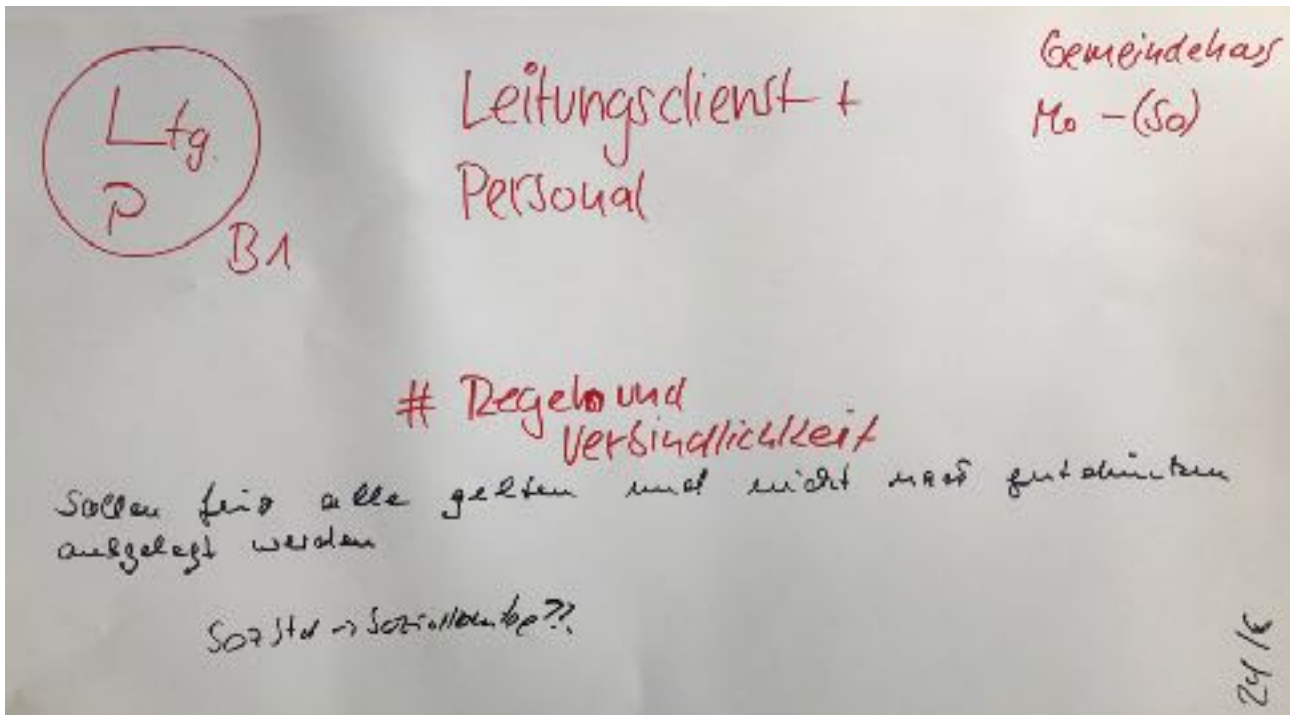 Ltg.
P
B1
Leitungsdienst +
Personal
Gemeindehaus
Mo - (So)
# Regeln und
Verbindlichkeit
Sollen für alle gelten und nicht nach gutdünken
ausgelegt werden
SozStd ->
24/